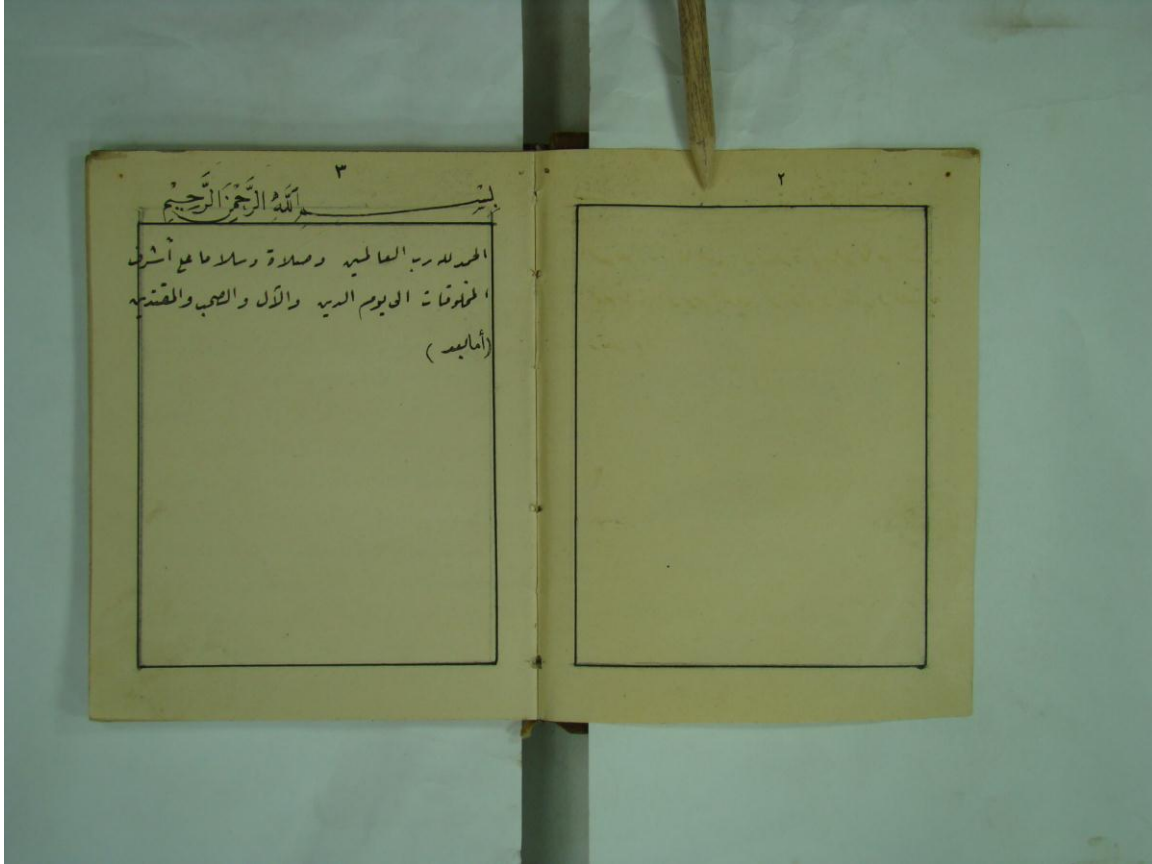 ٢
٣
بِسْمِ اللَّهِ الرَّحْمَنِ الرَّحِيمِ
الحمد لله رب العالمين وصلاة وسلاما على أشرف
المخلوقات الى يوم الدين والآل والصحب والمقتدين
(أما بعد)